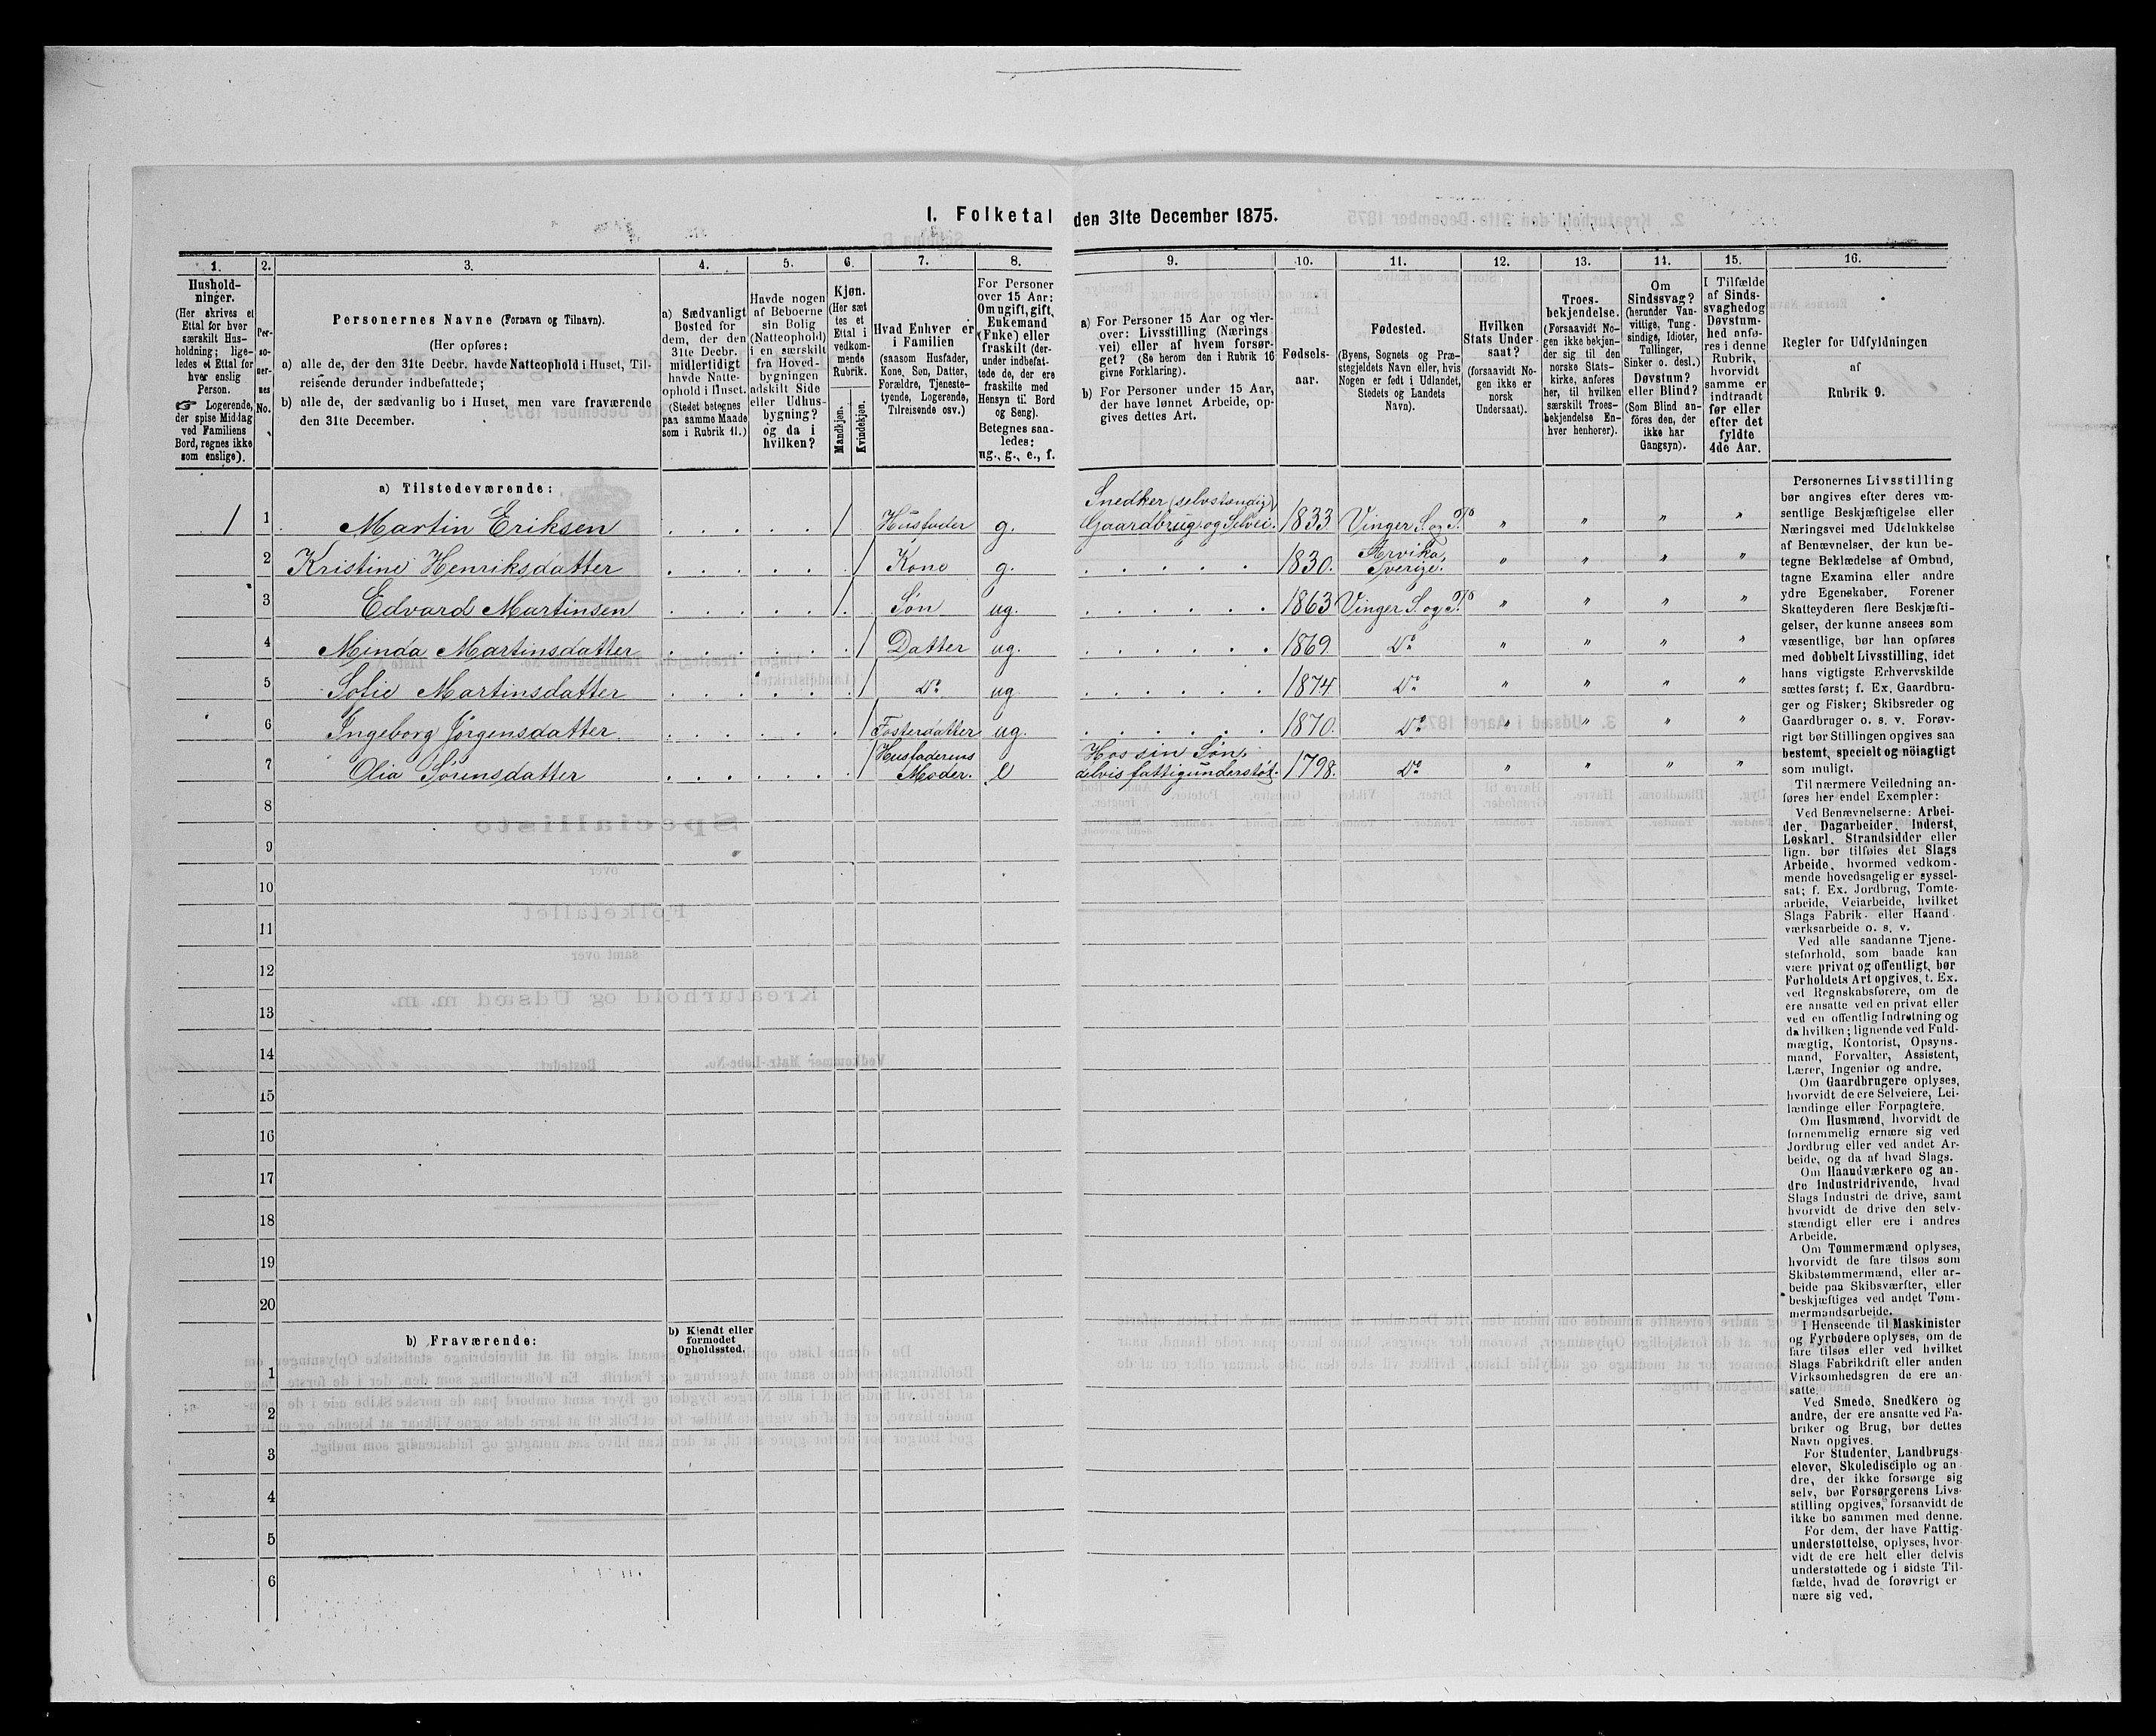 1. Folketal den 31te December 1875.
1. 2. 3. 4. 5. 6. 7. 8. 9. 10. 11. 12. 13. 14. 15. 16.
Hushold-
ninger.
(Her skrives et
Ettal for hver
særskilt Hus-
holdning; lige-
ledes et Ettal for
hver enslig
Person.
☞ Logerende,
der spise Middag
ved Familiens
Bord, regnes ikke
som enslige).
Per-
so-
ner-
nes
No.
Personernes Navne (Fornavn og Tilnavn).
(Her opføres:
a) alle de, der den 31te Decbr. havde Natteophold i Huset, Til-
reisende derunder indbefattede;
b) alle de, der sædvanlig bo i Huset, men vare fraværende
den 31te December.
a) Sædvanligt
Bosted for
dem, der den
31te Decbr.
midlertidigt
havde Natte-
ophold i Huset.
(Stedet betegnes
paa samme Maade
som i Rubrik 11.)
Havde nogen
af Beboerne
sin Bolig
(Natteophold)
i en særskilt
fra Hoved-
bygningen
adskilt Side
eller Udhus-
bygning?
og da i
hvilken?
Kjøn.
(Her sæt
tes et
Ettal i
vedkom-
mende
Rubrik.
Mandkjøn.
Kvindekjøn.
Hvad Enhver er
i Familien
(saasom Husfader,
Kone, Søn, Datter,
Forældre, Tjeneste-
tyende, Logerende,
Tilreisende osv.)
For Personer
over 15 Aar:
Om ugift, gift,
Enkemand
(Enke) eller
fraskilt (der-
under indbefat-
tede de, der ere
fraskilte med
Hensyn til Bord
og Seng).
Betegnes saa-
ledes:
ug., g., e., f.
a) For Personer 15 Aar og der-
over: Livsstilling (Nærings
vei) eller af hvem forsør-
get? (Se herom den i Rubrik 16
givne Forklaring).
b) For Personer under 15 Aar,
der have lønnet Arbeide, op-
gives dettes Art.
Fødsels-
aar.
Fødested.
(Byens, Sognets og Præ-
stegjeldets Navn eller, hvis
Nogen er født i Udlandet,
Stedets og Landets
Navn).
Hvilken
Stats Under
saat?
(forsaavidt No-
gen ikke er
norsk
Undersaat).
Troes-
bekjendelse.
(Forsaavidt No-
gen ikke bekjen-
der sig til den
norske Stats-
kirke, anføres
her, til hvilken
særskilt Troes-
bekjendelse En-
hver henhorer).
Om
Sindssvag?
(herunder Van-
vittige, Tung-
sindige, Idioter,
Tullinger,
Sinker o. desl.)
Døvstum?
eller Blind?
(Som Blind an-
føres den, der
ikke har
Gangsyn).
I Tilfælde
af Sinds-
svaghed og
Døvstum-
hed anfø-
res i denne
Rubrik,
hvorvidt
samme er
indtraadt
før eller
efter det
fyldte
4de Aar.
Regler for Udfyldningen
af
Rubrik 9.
a) Tilstedeværende:
1 1 Martin Eriksen 1 Husfader g. Snedker (selvstændig) Gaardbrug. og Selvei. 1833 Vinger S. og P. " " " "
2 Kristine Henriksdatter 1 Kone g. 1830. Arvika, Sverige. " " " "
3 Edvard Martinsen 1. Søn ug. 1863 Vinger S. og P. " " " "
4 Minda Martinsdatter 1 Datter ug. 1869 Do " " " "
5 Sofie Martinsdatter 1 Do ug. 1874 Do " " " "
6 Ingeborg Jörgensdatter 1 Fosterdatter ug. 1870. Do " " " "
7 Olia Sörensdatter 1 Husfaderens Moder. e Hos sin Søn, delvis fattigunderstøt. 1798. Do " " " "
8
9
10
11
12
13
14
15
16
17
18
19
20
b) Fraværende:
b) Kjendt eller
formodet
Opholdssted.
1
2
3
4
5
6
Personernes Livsstilling
bør angives efter deres væ-
sentlige Beskjæftigelse eller
Næringsvei med Udelukkelse
af Benævnelser, der kun be-
tegne Beklædelse af Ombud,
tagne Examina eller andre
ydre Egenskaber. Forener
Skatteyderen flere Beskjæfti-
gelser, der kunne ansees som
væsentlige, bør han opføres
med dobbelt Livsstilling, idet
hans vigtigste Erhvervskilde
sættes først; f. Ex. Gaardbru-
ger og Fisker; Skibsreder og
Gaardbruger o. s. v. Forøv-
rigt bør Stillingen opgives saa
bestemt, specielt og nöiagtigt
som muligt.
Til nærmere Veiledning an-
føres her endel Exempler:
Ved Benævnelserne: Arbei-
der, Dagarbeider, Inderst,
Løskarl, Strandsidder eller
lign. bør tilføies det Slags
Arbeide, hvormed vedkom-
mende hovedsagelig er syssel-
sat; f. Ex. Jordbrug, Tomte-
arbeide, Veiarbeide, hvilket
Slags Fabrik- eller Haand-
værksarbeide o. s. v.
Ved alle saadanne Tjene-
steforhold, som baade kan
være privat og offentligt, bør
Forholdets Art opgives, t. Ex.
ved Regnskabsførere, om de
ere ansatte ved en privat eller
ved en offentlig Indretning og
da hvilken; lignende ved Fuld-
mægtig, Kontorist, Opsyns-
mand, Forvalter, Assistent,
Lærer, Ingeniør og andre.
Om Gaardbrugere oplyses,
hvorvidt de ere Selveiere, Lei-
lændinge eller Forpagtere.
Om Husmænd, hvorvidt de
fornemmelig ernære sig ved
Jordbrug eller ved andet Ar-
beide, og da af hvad Slags.
Om Haandværkere og an-
dre Industridrivende, hvad
Slags Industri de drive, samt
hvorvidt de drive den selv-
stændigt eller ere i andres
Arbeide.
Om Tømmermænd oplyses,
hvorvidt de fare tilsøs som
Skibstømmermænd, eller ar-
beide paa Skibsværfter, eller
beskjæftiges ved andet Tøm-
mermandsarbeide.
I Henseende til Maskinister
og Fyrbødere oplyses, om de
fare tilsøs eller ved hvilket
Slags Fabrikdrift eller anden
Virksomhedsgren de ere an-
satte.
Ved Smede, Snedkere og
andre, der ere ansatte ved Fa-
briker og Brug, bør dettes
Navn opgives.
For Studenter, Landbrugs-
elever, Skoledisciple og an-
dre, der ikke forsørge sig
selv, bør Forsørgerens Livs-
stilling opgives, forsaavidt de
ikke bo sammen med denne.
For dem, der have Fattig-
understøttelse, oplyses, hvor-
vidt de ere helt eller delvis
understøttede og i sidste Til-
fælde, hvad de forøvrigt er-
nære sig ved.